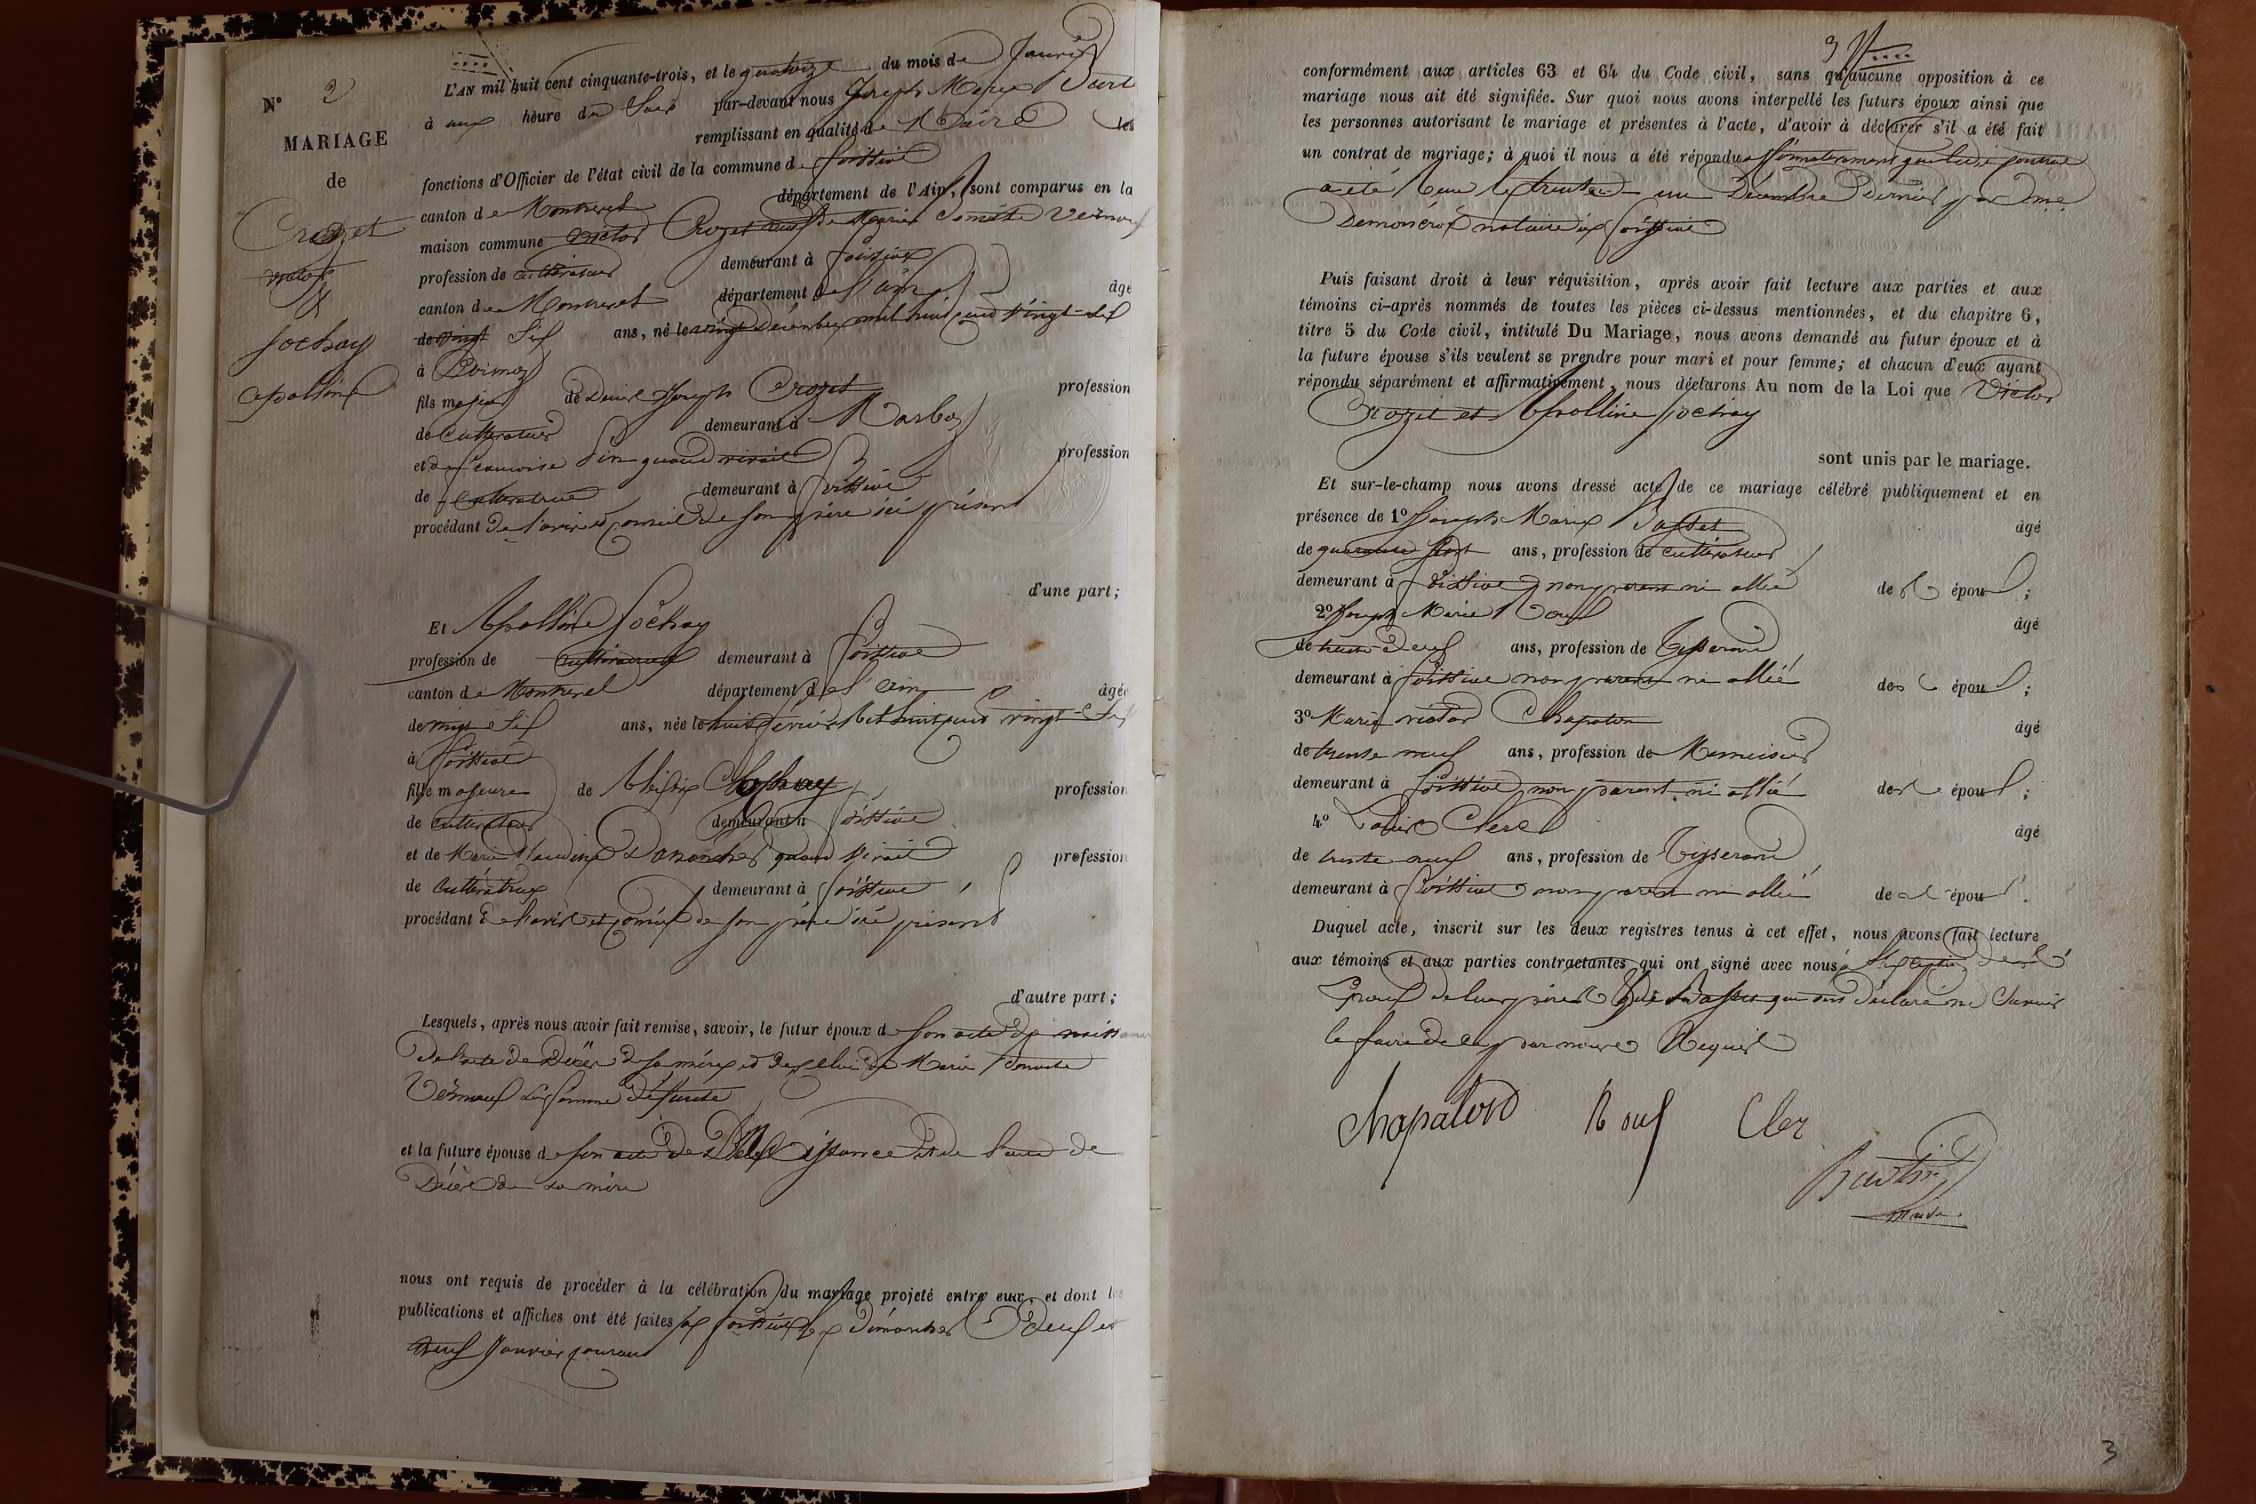 N° 2
MARIAGE
de
Crozet
victor
&
Sochay
apolline
L'AN mil huit cent cinquante-trois, et le quatorze du mois de Janvier
à heure du Soir par-devant nous Joseph Marie
remplissant en qualité de Maire les
fonctions d'Officier de l'état civil de la commune de foissiat
canton de Montrevel département de l'Ain, sont comparus en la
maison commune victor Crozet veuf de Marie
profession de cultivateur demeurant à foissiat
canton de Montrevel département de l'ain âgé
de vingt Six ans, né le vingt Décembre mil huit cent vingt-Six
à
fils majeur de Joseph Crozet profession
de cultivateur demeurant à Marboz
et de francoise quand vivait profession
de cultivatrice demeurant à foissiat
procédant De l'avis et conseil de son père ici présent
d'une part;
Et Apolline Sochay
profession de cultivatrice demeurant à foissiat
canton de Montrevel département de l'ain âgée
de vingt Six ans, née le huit février Mil huit cent vingt-Six
à foissiat
fille majeure de profession
de cultivateur demeurant à foissiat
et de Marie Claudine quand Vivait profession
de cultivatrice demeurant à foissiat
procédant De l'avis et conseil de son père ici présent
d'autre part;
Lesquels, après nous avoir fait remise, savoir, le futur époux de son acte de naissance
De l'acte de Décès de sa mère et de celui de Marie
sa femme défunte
et la future épouse de son acte de Naissance et de l'acte de
Décès de sa mère
nous ont requis de procéder à la célébration du mariage projeté entre eux, et dont les
publications et affiches ont été faites à foissiat les dimanches Deux et
neuf Janvier courant
3
conformément aux articles 63 et 64 du Code civil, sans qu'aucune opposition à ce
mariage nous ait été signifiée. Sur quoi nous avons interpellé les futurs époux ainsi que
les personnes autorisant le mariage et présentes à l'acte, d'avoir à déclarer s'il a été fait
un contrat de mariage; à quoi il nous a été répondu affirmativement que ledit contrat
a été reçu le trente un Décembre Dernier par me
notaire à foissiat
Puis faisant droit à leur réquisition, après avoir fait lecture aux parties et aux
témoins ci-après nommés de toutes les pièces ci-dessus mentionnées, et du chapitre 6,
titre 5 du Code civil, intitulé Du Mariage, nous avons demandé au futur époux et à
la future épouse s'ils veulent se prendre pour mari et pour femme; et chacun d'eux ayant
répondu séparément et affirmativement, nous déclarons Au nom de la Loi que Victor
Crozet et Apolline Sochay
sont unis par le mariage.
Et sur-le-champ nous avons dressé acte de ce mariage célébré publiquement et en
présence de 1° Joseph Marie Basset âgé
de quarante Sept ans, profession de cultivateur
demeurant à foissiat non parent ni allié des époux;
2° Joseph Marie Rouf âgé
de trente Deux ans, profession de Tisserand
demeurant à foissiat non parent ni allié des époux;
3° Marie victor Chapaton âgé
de trente neuf ans, profession de Menuisier
demeurant à foissiat non parent ni allié des époux;
4° Clerc âgé
de trente neuf ans, profession de Tisserand
demeurant à foissiat non parent ni allié des époux.
Duquel acte, inscrit sur les deux registres tenus à cet effet, nous avons fait lecture
aux témoins et aux parties contractantes qui ont signé avec nous à l'exception des
Époux de leurs pères et de Basset qui ont déclaré ne Savoir
le faire de ce par nous Requis
chapaton Rouf Cler
maire
3